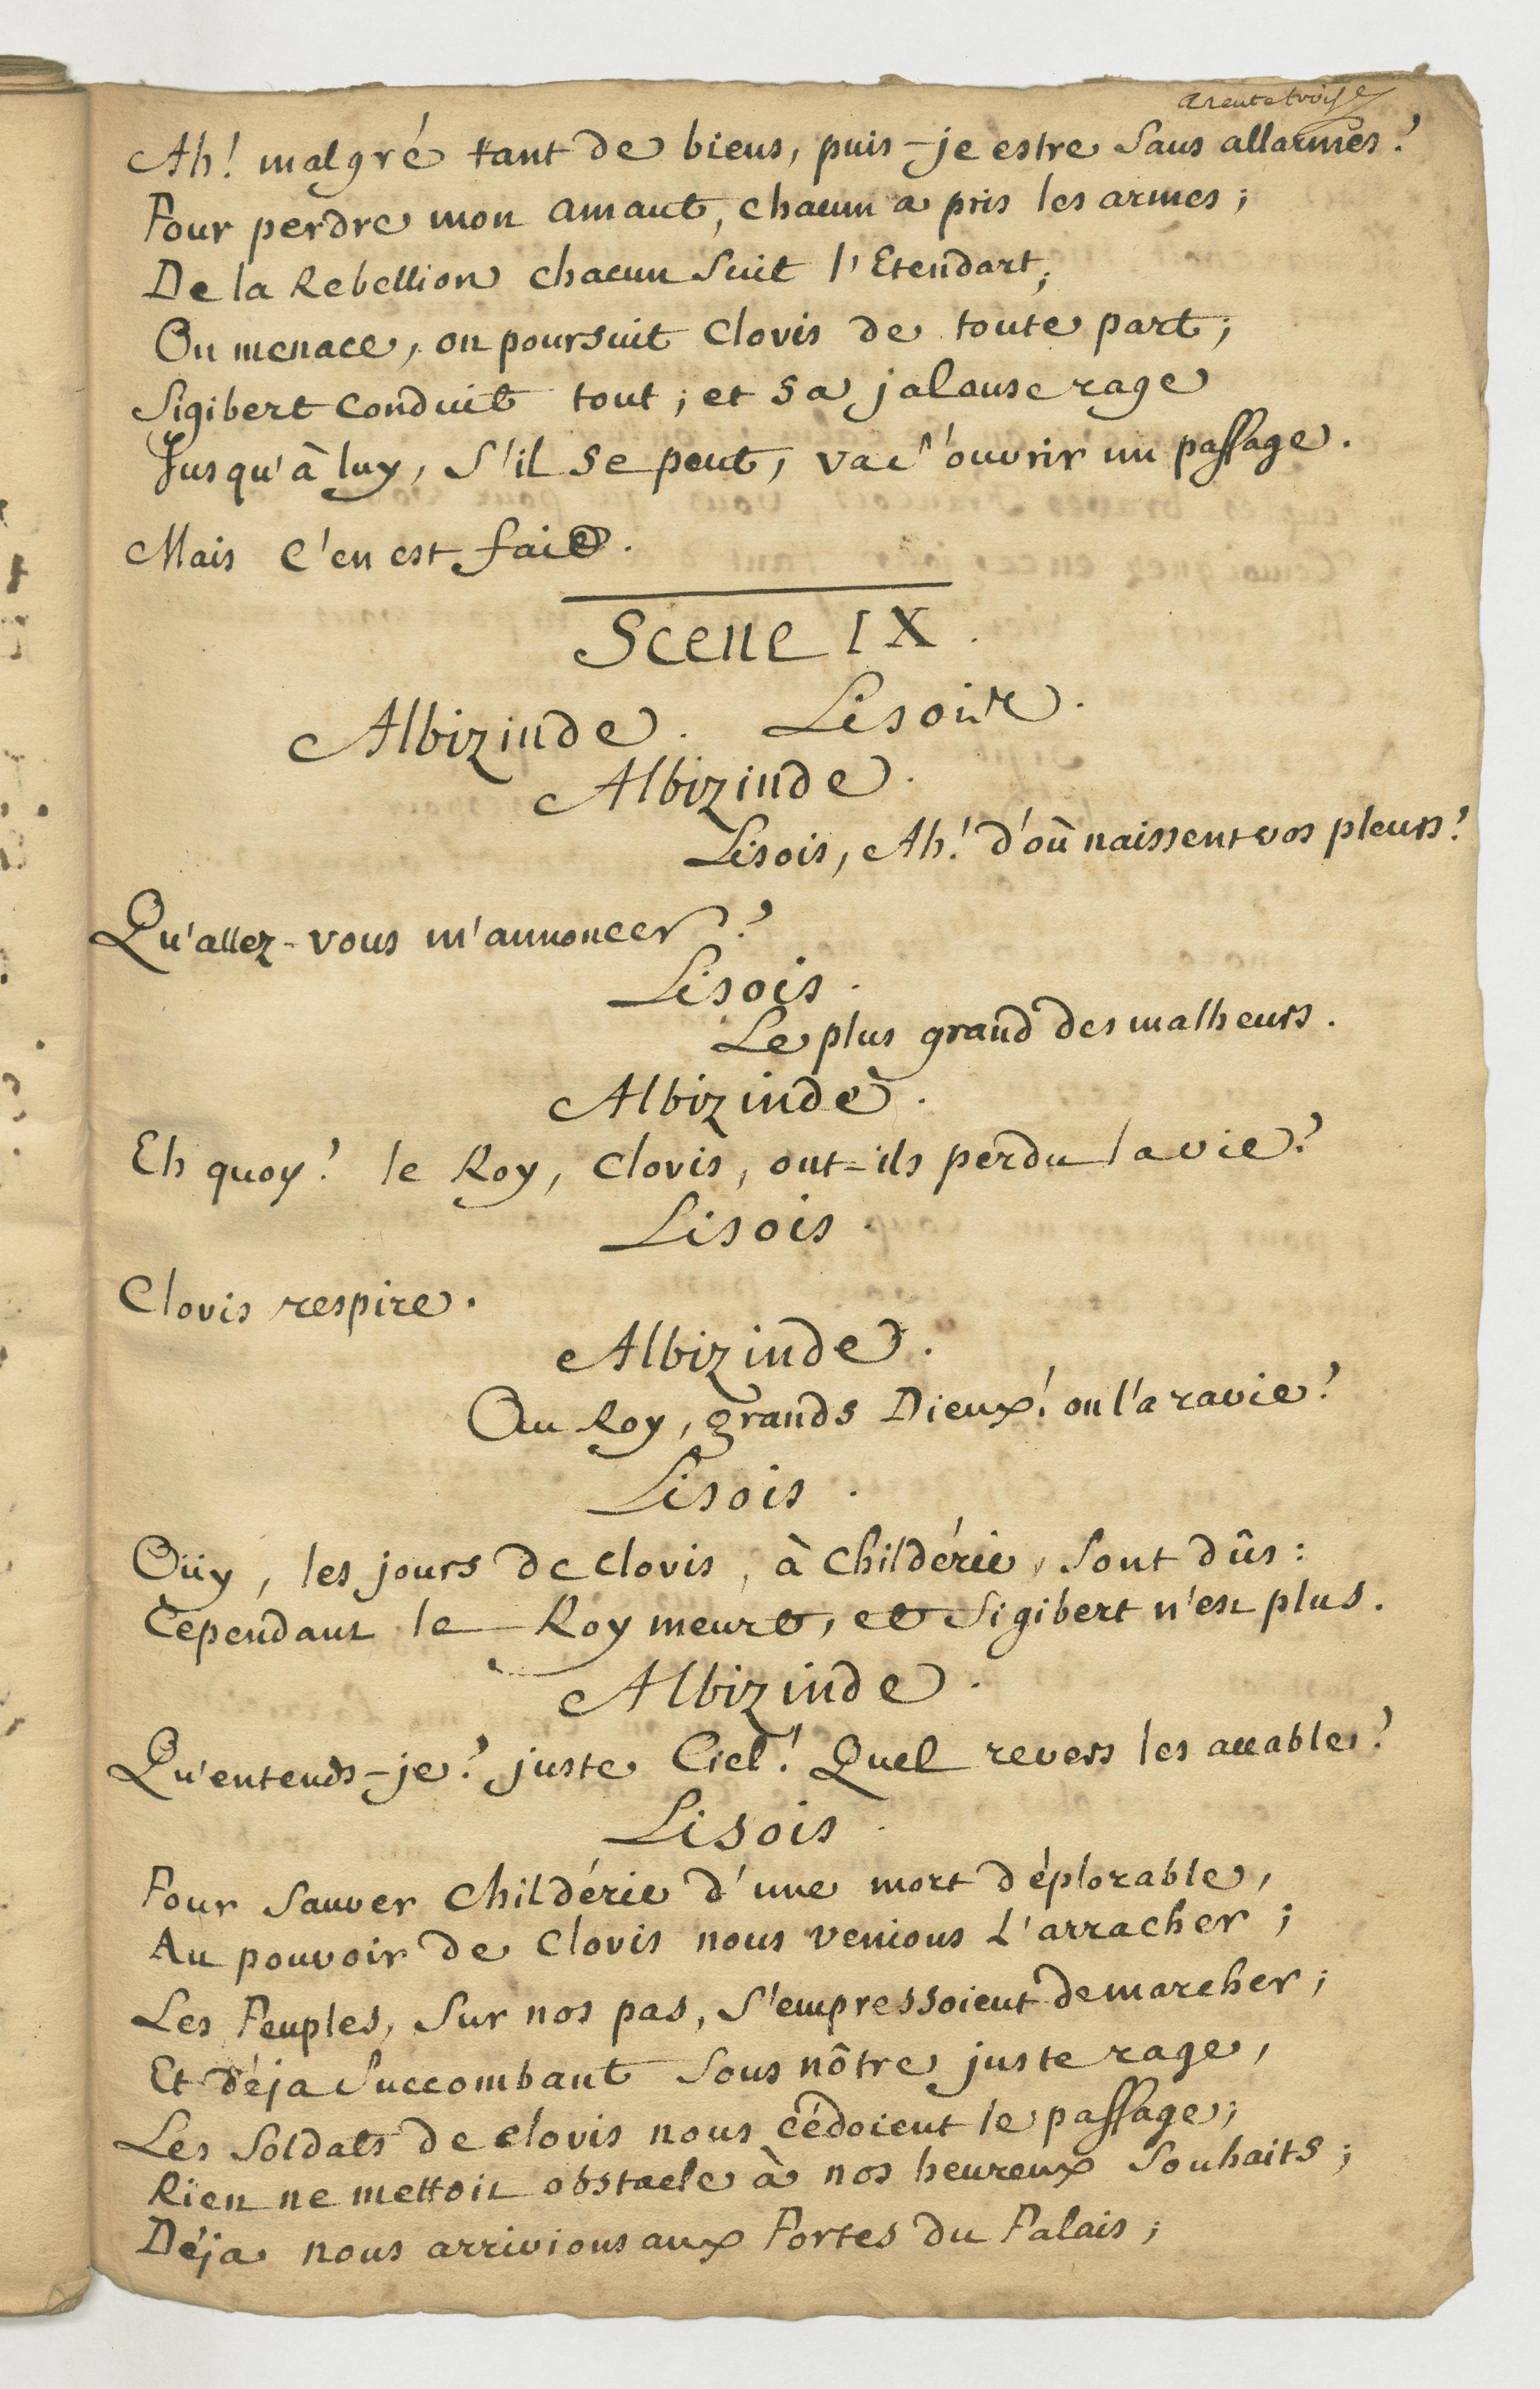 Ah! malgré tant de biens, puis-je estre sans allarmes?
Pour perdre mon amant, chacun a pris les armes;
De la Rebellion chacun suit l'Etendart;
On menace, on poursuit Clovis de toute part;
Sigibert conduit tout; et sa jalouse rage
Jusqu'à luy, s'il se peut, va s'ouvrir un passage.
Mais c'en est fait.
Scene IX.
Albizinde. Lisois.
Albizinde.
Lisois, Ah! d'où naissent vos pleurs?
Qu'allez-vous m'annoncer?
Lisois.
Le plus grand des malheurs.
Albizinde.
Eh quoy! le Roy, Clovis, ont-ils perdu la vie?
Lisois.
Clovis respire.
Albizinde.
Au Roy, grands Dieux! on l'a ravie?
Lisois.
Oüy, les jours de Clovis, à Childéric, sont dûs:
Cependant le Roy meurt, et Sigibert n'est plus.
Albizinde.
Qu'entends-je? juste Ciel! Quel revers les accable?
Lisois.
Pour sauver Childéric d'une mort déplorable,
Au pouvoir de Clovis nous venions l'arracher;
Les Peuples, sur nos pas, s'empressoient de marcher;
Et déja succombant sous nôtre juste rage,
Les Soldats de Clovis nous cédoient le passage;
Rien ne mettoit obstacle à nos heureux souhaits;
Déja nous arrivions aux Portes du Palais;